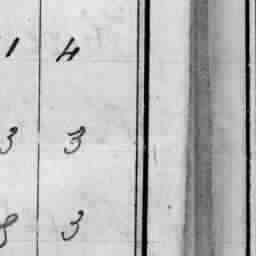 1 4
3 3
8 3